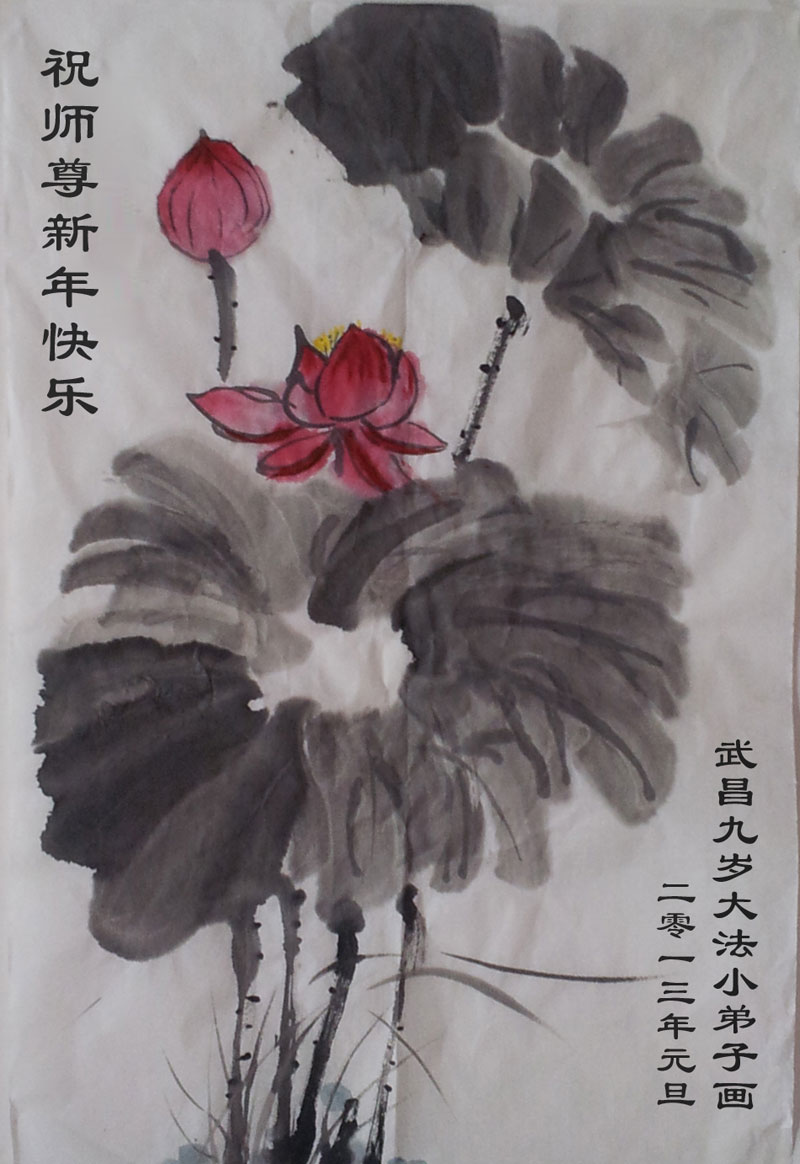 祝师尊新年快乐
武昌九岁大法小弟子画
二零一三年元旦